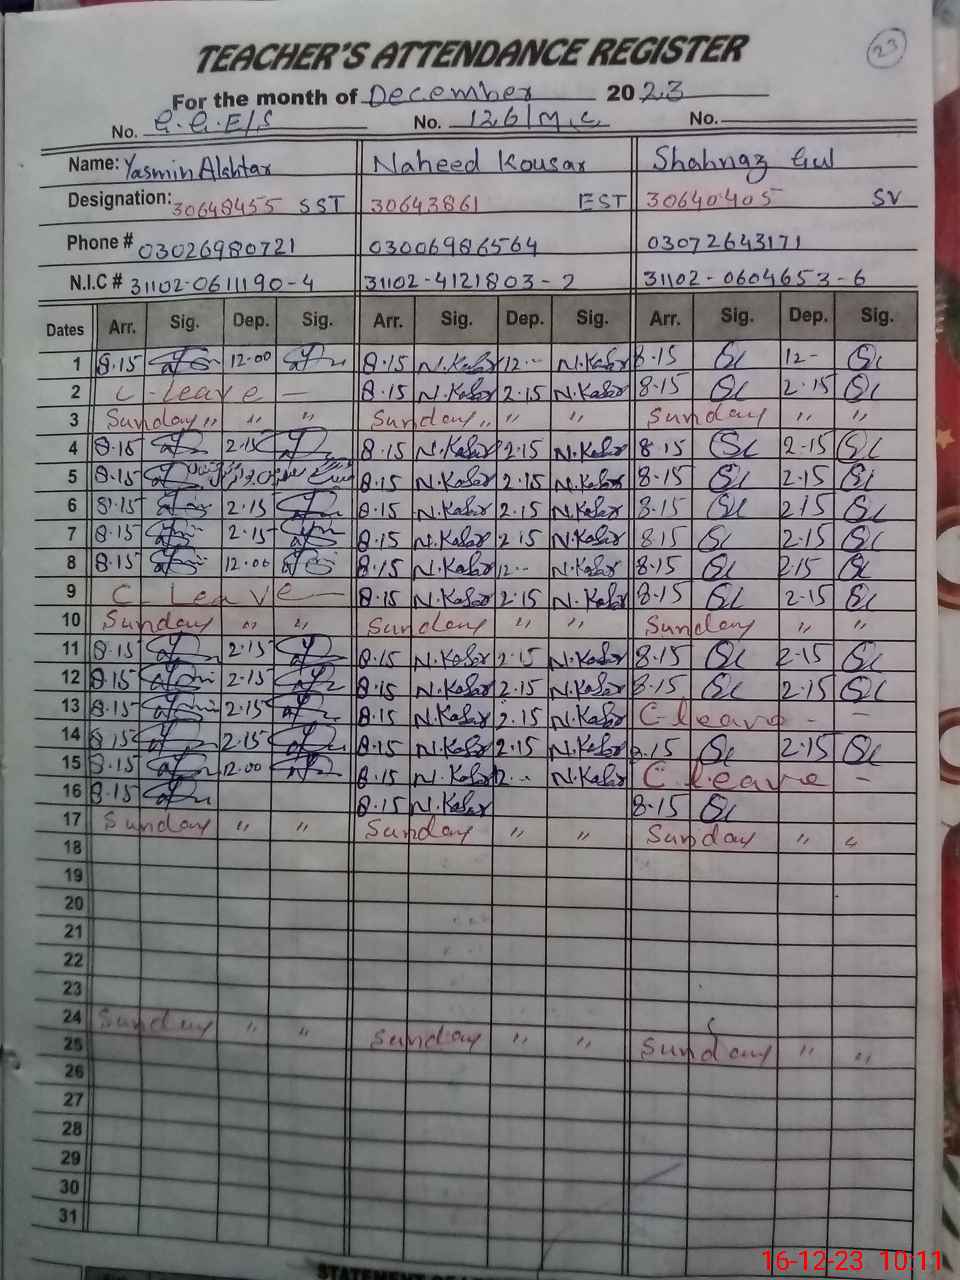 23
TEACHER'S ATTENDANCE REGISTER
For the month of December 2023
No. G.G.E/S No. 126/M.C. No.
Name: Yasmin Akhtar Naheed Kousar Shahnaz Gul
Designation: 30648455 SST 30643861 EST 30640405 SV
Phone # 03026980721 03006986564 03072643171
N.I.C # 31102-0611190-4 31102-4121803-2 31102-0604653-6
Dates Arr. Sig. Dep. Sig. Arr. Sig. Dep. Sig. Arr. Sig. Dep. Sig.
1 8.15 12.00 8.15 N.Kosar 12-- N.Kosar 8.15 12-
2 C-leave - 8.15 N.Kosar 2.15 N.Kosar 8.15 2.15
3 Sunday " " " Sunday " " " Sunday " "
4 8.15 2.15 8.15 N.Kosar 2.15 N.Kosar 8.15 2.15
5 8.15 8.15 N.Kosar 2.15 N.Kosar 8.15 2.15
6 8.15 2.15 8.15 N.Kosar 2.15 N.Kosar 8.15 2.15
7 8.15 2.15 8.15 N.Kosar 2.15 N.Kosar 8.15 2.15
8 8.15 12.00 8.15 N.Kosar 12-- N.Kosar 8.15 2.15
9 C-Leave - 8.15 N.Kosar 2.15 N.Kosar 8.15 2.15
10 Sunday " " Sunday " " Sunday " "
11 8.15 2.15 8.15 N.Kosar 2.15 N.Kosar 8.15 2.15
12 8.15 2.15 8.15 N.Kosar 2.15 N.Kosar 8.15 2.15
13 8.15 2.15 8.15 N.Kosar 2.15 N.Kosar C-leave - -
14 8.15 2.15 8.15 N.Kosar 2.15 N.Kosar 8.15 2.15
15 8.15 12.00 8.15 N.Kosar 12-- N.Kosar C-leave -
16 8.15 8.15 N.Kosar 8.15
17 Sunday " " Sunday " " Sunday " "
18
19
20
21
22
23
24 Sunday " " Sunday " " Sunday " "
25
26
27
28
29
30
31
16-12-23 10:11